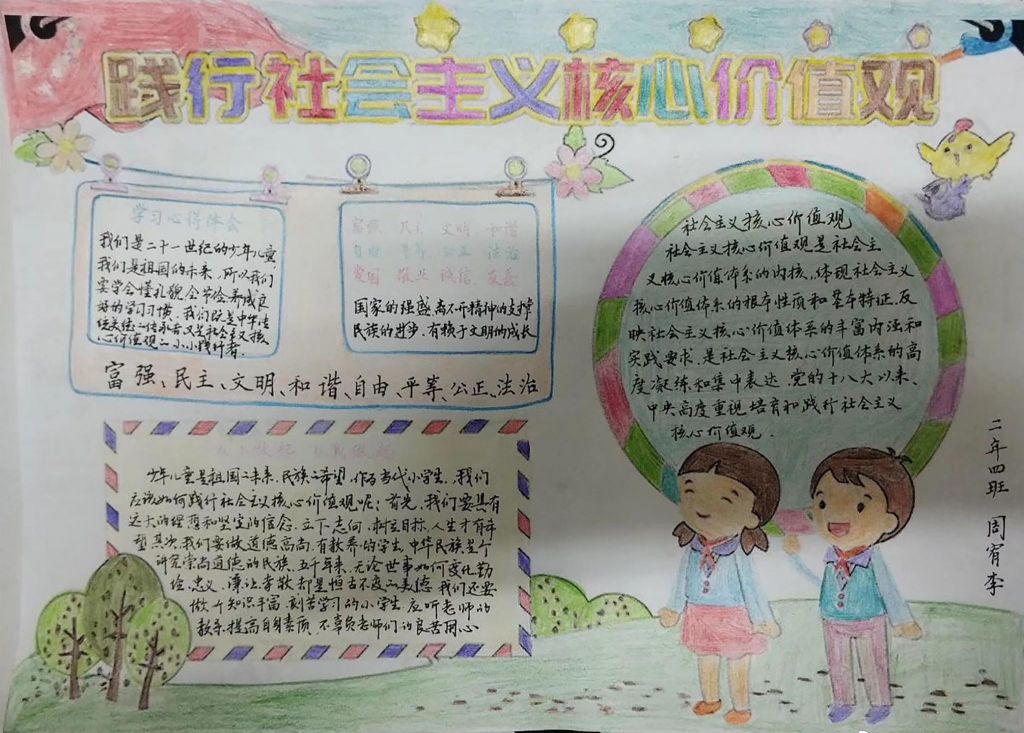 践行社会主义核心价值观
学习心得体会
我们是二十一世纪的少年儿童
我们是祖国的未来，所以我们
要学会懂礼貌会节俭养成良
好的学习习惯，我们既是中华传
统美德的传承者又是社会主义核
心价值观的小小践行者
富强 民主 文明 和谐
自由 平等 公正 法治
爱国 敬业 诚信 友善
国家的强盛离不开精神的支撑
民族的进步，有赖于文明的成长
富强、民主、文明、和谐、自由、平等、公正、法治
少年儿童是祖国之未来，民族之希望，作为当代小学生，我们
应该如何践行社会主义核心价值观呢：首先，我们要具有
远大的理想和坚定的信念，立下志向，树立目标，人生才有希
望其次，我们要做道德高尚，有教养的学生，中华民族是个
讲究崇尚道德的民族，五千年来，无论世事如何变化勤
俭，忠义，谦让孝敬都是恒古不变的美德，我们还要
做个知识丰富，刻苦学习的小学生，应听老师的
教导，提高自身素质，不辜负老师们的良苦用心
社会主义核心价值观
社会主义核心价值观是社会主
义核心价值体系的内核，体现社会主义
核心价值体系的根本性质和基本特征，反
映社会主义核心价值体系的丰富内涵和
实践要求，是社会主义核心价值体系的高
度凝练和集中表达，党的十八大以来、
中央高度重视培育和践行社会主义
核心价值观．
二年四班 周宵李